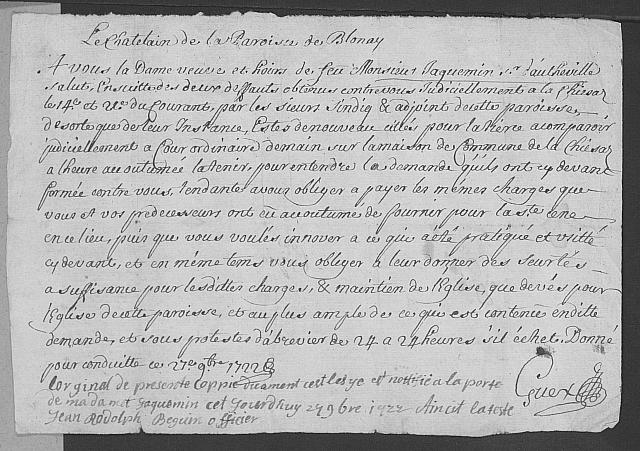 Le Chatelain de la Paroisse de Blonay
A vous la Dame veuve et hoirs de feu Monsieur Jaquemin Sr. d'autheville
salut, Ensuitte des deux deffauts obtenus contre vous Judiciellement a la Chiésaz
le 14e. et 21e. du Courant, par les sieurs Sindiq & adjoint de cette paroisse,
de sorte que de leur Instance, Estes de nouveau cités pour la tierce a comparoir
judiciellement a Cour ordinaire demain sur la maison de Commune de la Chiésaz
a l'heure accoutumée la tenir, pour entendre la demande qu'ils ont cy devant
formée contre vous, Tendante a vous obliger a payer les mêmes charges que
vous et vos predecesseurs ont eu accoutumé de fournir pour la ste. cene
en ce lieu, puis que vous voulés innover a ce qui a été pratiqué et usitté
cy devant, et en même tems vous obliger a leur donner des seurtés
a suffisance pour lesdittes charges, & maintien de l'Eglise, que devés pour
l'Eglise de cette paroisse, et au plus ample de ce qui est contenu en ditte
demande, et sous protestes d'abrevier de 24 a 24 heures s'il échet, Donné
pour conduitte ce 27e. 9bre 1722
Cuex
l'orginal de presente Coppie diuament cellesye et nottifié a la porte
de madamet Jaquemin cet Jourdhuy 27 9bre 1722 Aincit lateste
Jean Rodolph Beguin officier